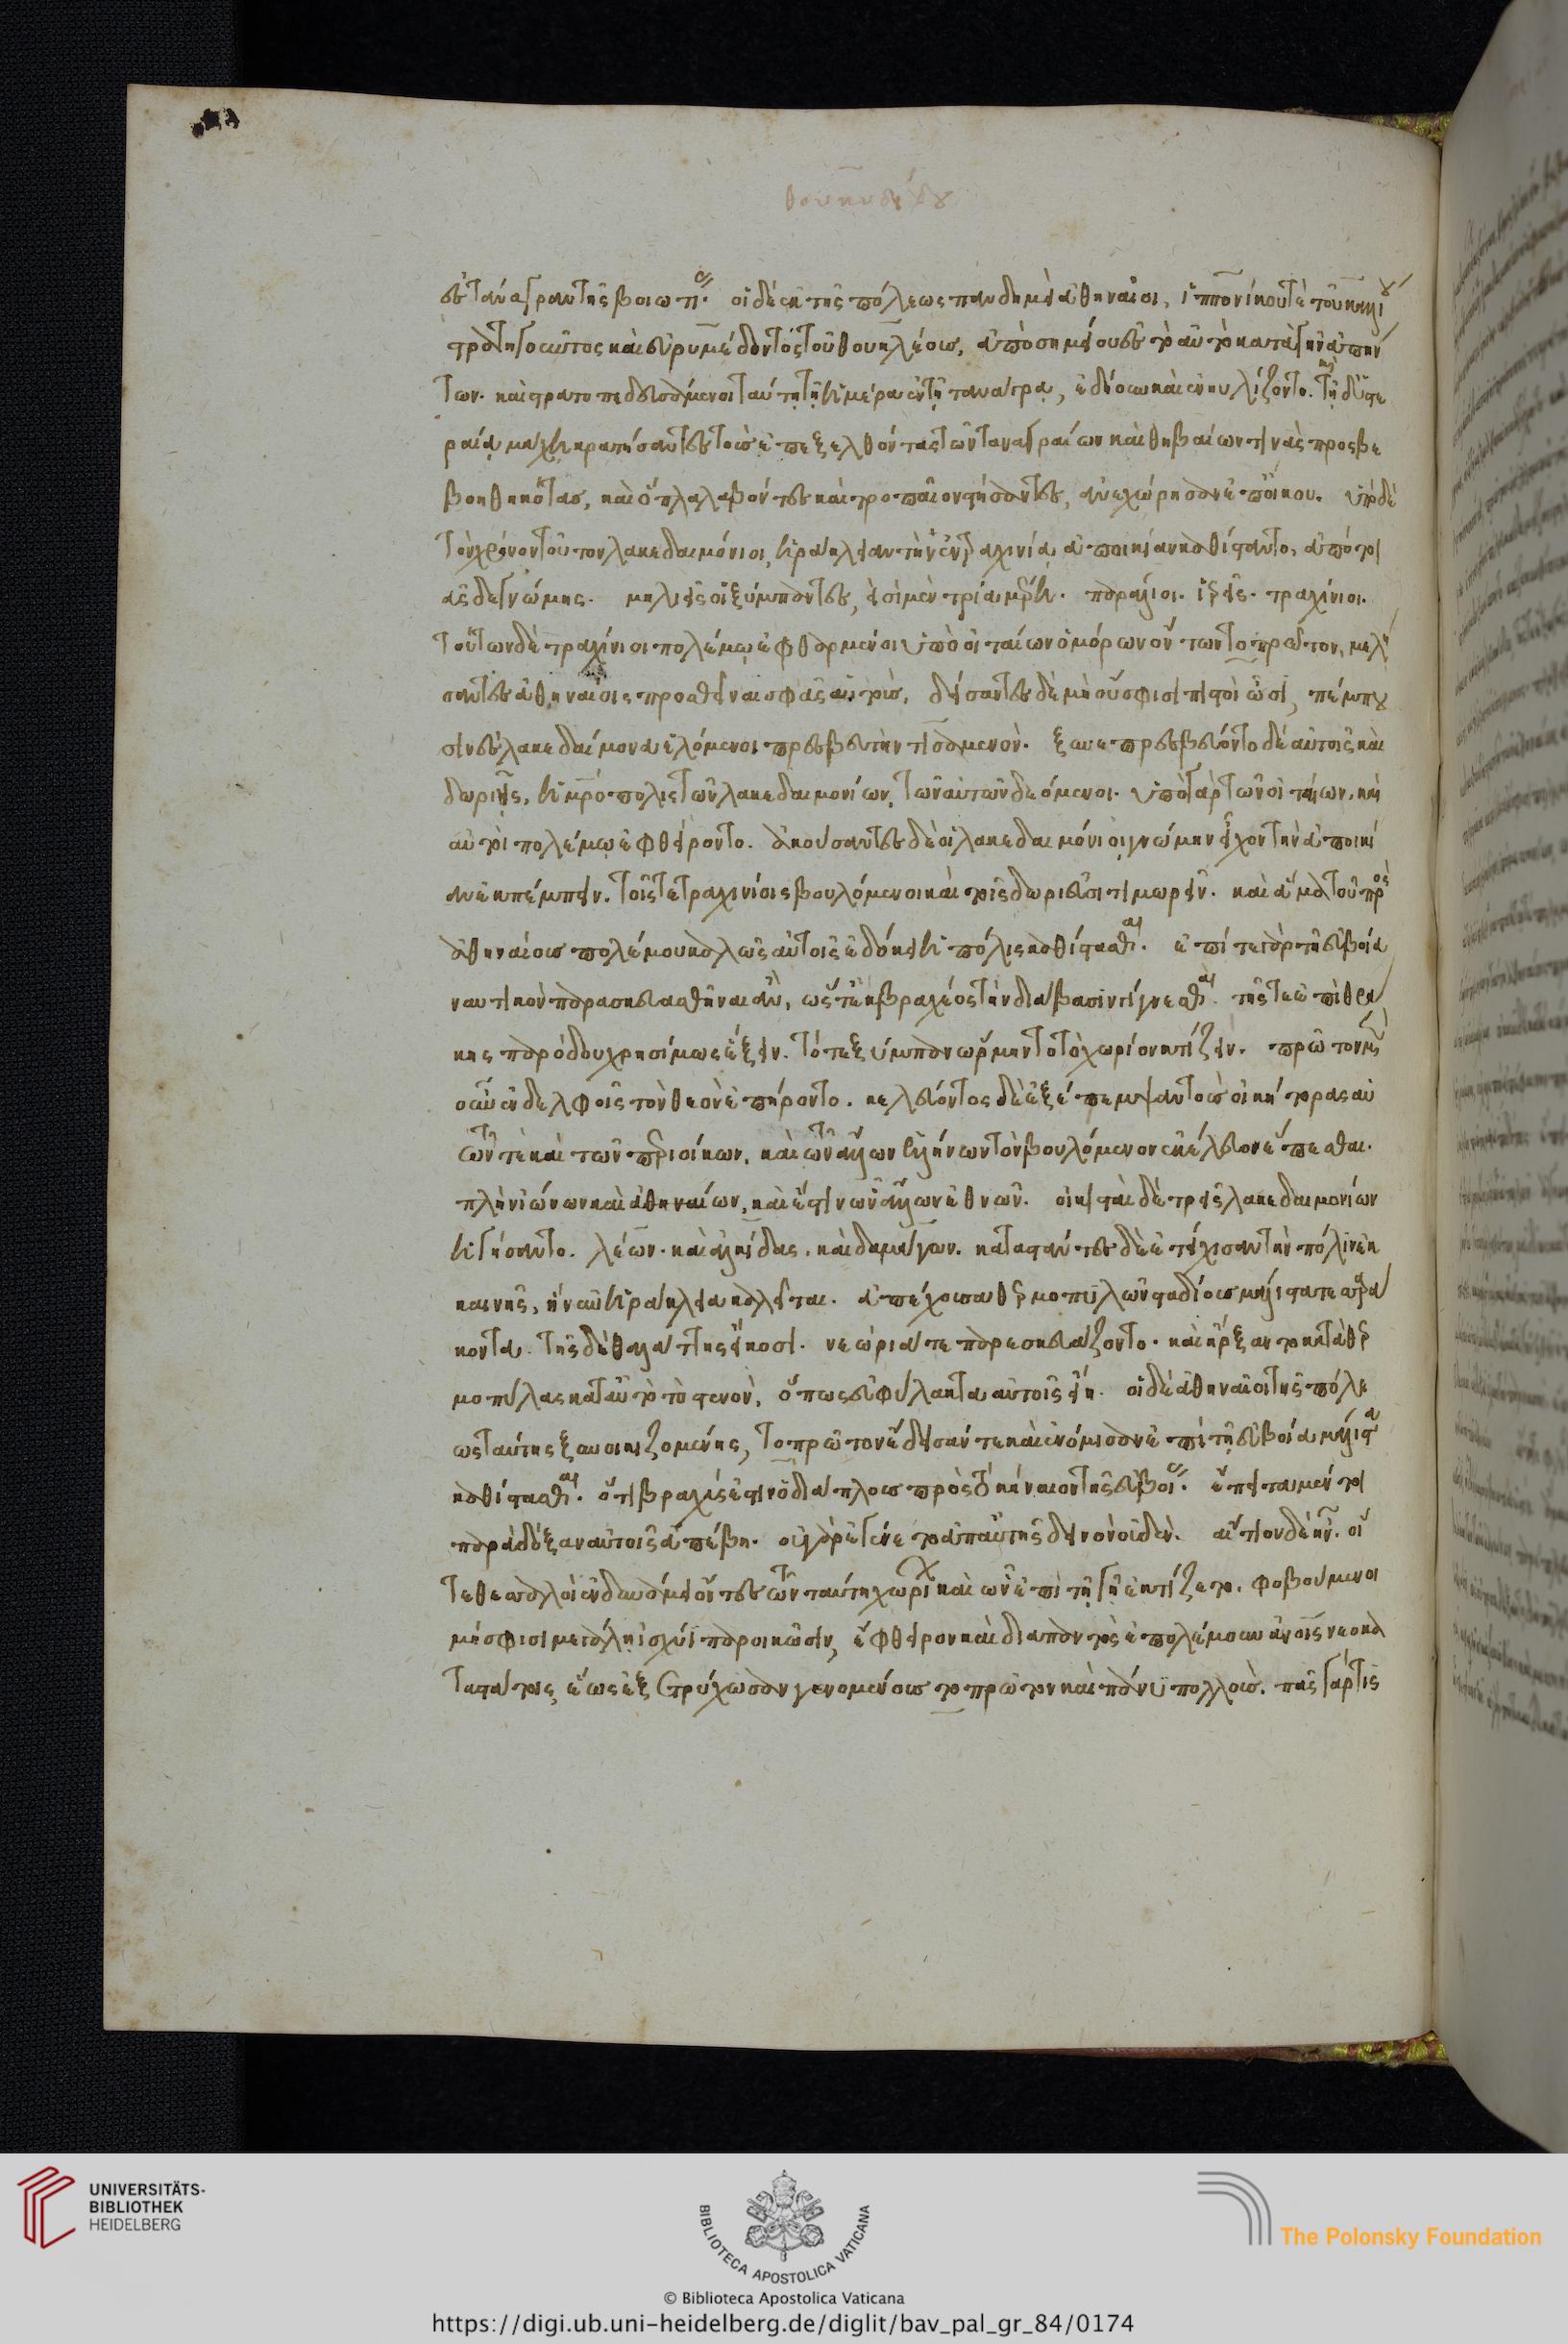 θουκυδίδου
ἐς τάναγραν τῆς βοιωτίας. οἱ δὲ ἐκ τῆς πόλεως πανδημεὶ ἀθηναῖοι, ἱππονίκου τὲ τοῦ καλλίου
στρατηγοῦντος καὶ εὐρυμέδοντος τοῦ θουκλέους, ἀπὸ σημείου ἐς τὸ αὐτὸ κατὰ γῆν ἀπήν
των. καὶ στρατοπεδευσάμενοι ταύτῃ τῇ ἡμέρα ἐν τῇ τανάγρᾳ, ἐδῄουν καὶ ἐνηυλίζοντο. καὶ τῇ ὑστε
ραίᾳ μάχῃ κρατήσαντες τοὺς ἐπεξελθόντας τῶν ταναγραίων καὶ θηβαίων τινὰς προσβε
βοηθηκότας, καὶ ὅπλα λαβόντες καὶ τροπαῖον στήσαντες, ἀνεχώρησαν ἐπ οἴκου. ὑπὸ δὲ
τὸν χρόνον τοῦτον λακεδαιμόνιοι, ἡράκλειαν τὴν ἐν τραχινίᾳ ἀποικίαν καθίσταντο, ἀπὸ τοι
ᾶς δε γνώμης. μηλιεῖς οἱ ξύμπαντες, εἰσὶ μὲν τρία μέρη. παράλιοι. ἱερεῖς. τραχίνιοι.
τούτων δὲ τραχίνιοι πολέμῳ ἐφθαρμένοι ὑπὸ οἰταίων ὁμόρων ὄντων τὸ πρῶτον, μελλή
σαντες ἀθηναίοις προσθεῖναι σφᾶς αὐτούς, δείσαντες δὲ μὴ οὔ σφισι πιστοὶ ὦσι, πέμπου
σιν ἐς λακεδαίμονα ἑλόμενοι πρεσβευτὴν τισαμενόν. ξυνεπρεσβεύοντο δὲ αὐτοῖς καὶ
δωριῆς, ἡ μητρόπολις τῶν λακεδαιμονίων, τῶν αὐτῶν δεόμενοι. ὑπὸ γὰρ τῶν οἰταίων, καὶ
αὐτοὶ πολέμῳ ἐφθείροντο. ἀκούσαντες δὲ οἱ λακεδαιμόνιοι γνώμην εἶχον τὴν ἀποικί
αν ἐκπέμπειν. τοῖς τε τραχινίοις βουλόμενοι καὶ τοῖς δωριεῦσι τιμωρεῖν. καὶ ἅμα τοῦ πρὸς
ἀθηναίους πολέμου καλῶς αὐτοῖς ἐδόκει ἡ πόλις καθίστασθαι. ἐπί τε γὰρ τῇ εὐβοίᾳ
ναυτικὸν παρασκευασθῆναι ἂν, ὥστ' ἐκ βραχέος τὴν διάβασιν γίγνεσθαι. τῆς τε ἐπὶ θρά
κης παρόδου χρησίμως ἕξειν. τό τε ξύμπαν ὥρμηντο τὸ χωρίον κτίζειν. πρῶτον μὲν
οὖν ἐν δελφοῖς τὸν θεὸν ἐπήροντο. κελεύοντος δὲ ἐξέπεμψαν τοὺς οἰκήτορας αὐ
τῶν τὲ καὶ τῶν περιοίκων. καὶ τῶν ἄλλων ἑλλήνων τὸν βουλόμενον ἐκέλευον ἕπεσθαι.
πλὴν ἰώνων καὶ ἀθηναίων, καὶ ἔστιν ὧν ἄλλων ἐθνῶν. οἰκισταὶ δὲ τρεῖς λακεδαιμονίων
ἡγήσαντο. λέων. καὶ ἀλκίδας. καὶ δαμάγων. καταστάντες δὲ ἐτείχισαν τὴν πόλιν ἐκ
καινῆς, ἣ νῦν ἡράκλεια καλεῖται. ἀπέχουσα θερμοπυλῶν σταδίους μάλιστα τεσσαρά
κοντα. τῆς δὲ θαλάττης εἴκοσι. νεώριά τε παρεσκευάζοντο. καὶ ἦρξαντο κατὰ θερ
μοπύλας κατ αὐτὸ τὸ στενόν, ὅπως εὐφύλακτα αὐτοῖς εἴη. οἱ δὲ ἀθηναῖοι τῆς πόλε
ως ταύτης ξυνοικιζομένης, τὸ πρῶτον ἔδεισάν τε καὶ ἐνόμισαν ἐπὶ τῇ εὐβοίᾳ μάλιστα
καθίστασθαι. ὅτι βραχύς ἐστιν ὁ διάπλους πρὸς τὸ κήναιον τῆς εὐβοίας. ἔπειτα μέν τοι
παρὰ δόξαν αὐτοῖς ἀπέβη. οὐ γὰρ ἐγένετο ἀπ αὐτῆς δεινὸν οὐδέν. αἴτιον δὲ ἦν. οἵ
τε θεσσαλοὶ ἐν δυνάμει ὄντες τῶν ταύτῃ χωρίων καὶ ὧν ἐπὶ τῇ γῇ ἐκτίζετο. φοβούμενοι
μή σφισι μεγάλῃ ἰσχύϊ παροικῶσιν, ἔφθειρον καὶ διαπαντὸς ἐπολέμουν ἀνοῖς νεοκα
ταστάτοις, ἕως ἐξετρύχωσαν γενομένους τὸ πρῶτον καὶ πάνυ πολλούς. πᾶς γάρ τις
UNIVERSITÄTS-
BIBLIOTHEK
HEIDELBERG
BIBLIOTECA APOSTOLICA VATICANA
The Polonsky Foundation
© Biblioteca Apostolica Vaticana
https://digi.ub.uni-heidelberg.de/diglit/bav_pal_gr_84/0174